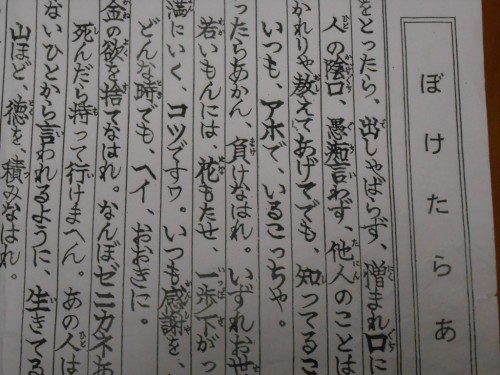 ぼけたらあ
をとったら、出しゃばらず、憎まれ口に
人の陰口、愚痴言わず、他人のことは
かれりゃ教えてあげてでも、知ってるこ
いつも、アホで、いるこっちゃ。
ったらあかん、負けなはれ。いずれお世
若いもんには、花もたせ、一歩下がっ
満にいく、コツですワ。いつも感謝を、
どんな時でも、ヘイ、おおきに。
金の欲を捨てなはれ。なんぼ、ゼニカネあ
死んだら持って行けまへん。あの人は
ないひとから言われるように、生きてる
山ほど、徳を、積みなはれ。